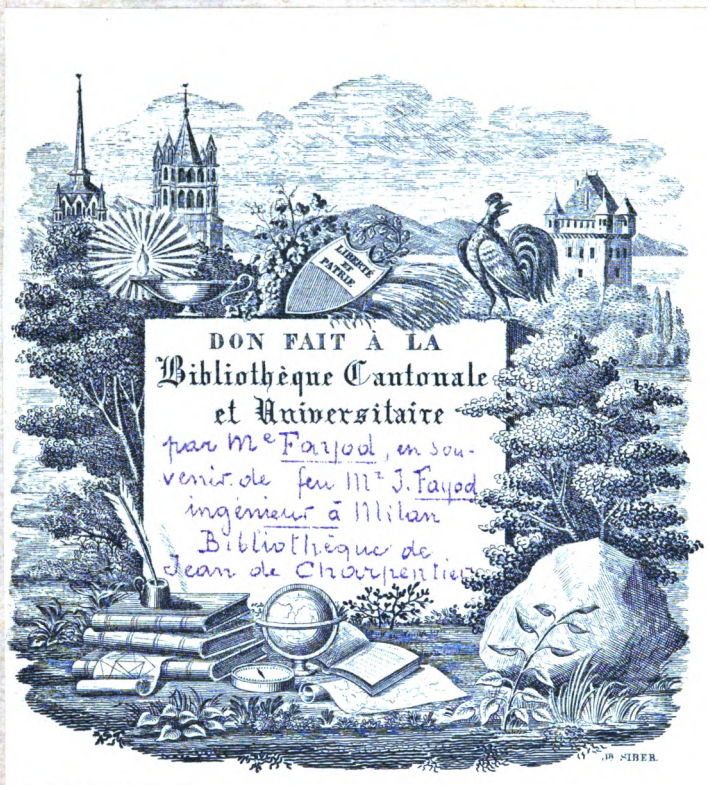 LIBERTÉ
ET
PATRIE
DON FAIT À LA
Bibliothèque Cantonale
et Universitaire
par Me Fayod, en sou-
venir de feu Mr J. Fayod
ingénieur à Milan
Bibliothèque de
Jean de Charpentier
SIBER